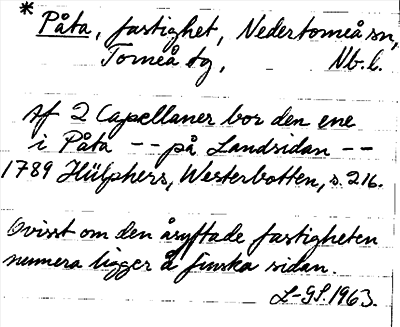 * Påta, fastighet, Nedertorneå sn,
Torneå tg, Nb. l.
Af 2 Capellaner bor den ene
i Påta -- på Landsidan --
1789 Hülphers, Westerbotten, s. 216.
Ovisst om den åsyftade fastigheten
numera ligger å finska sidan.
L-GS. 1963.